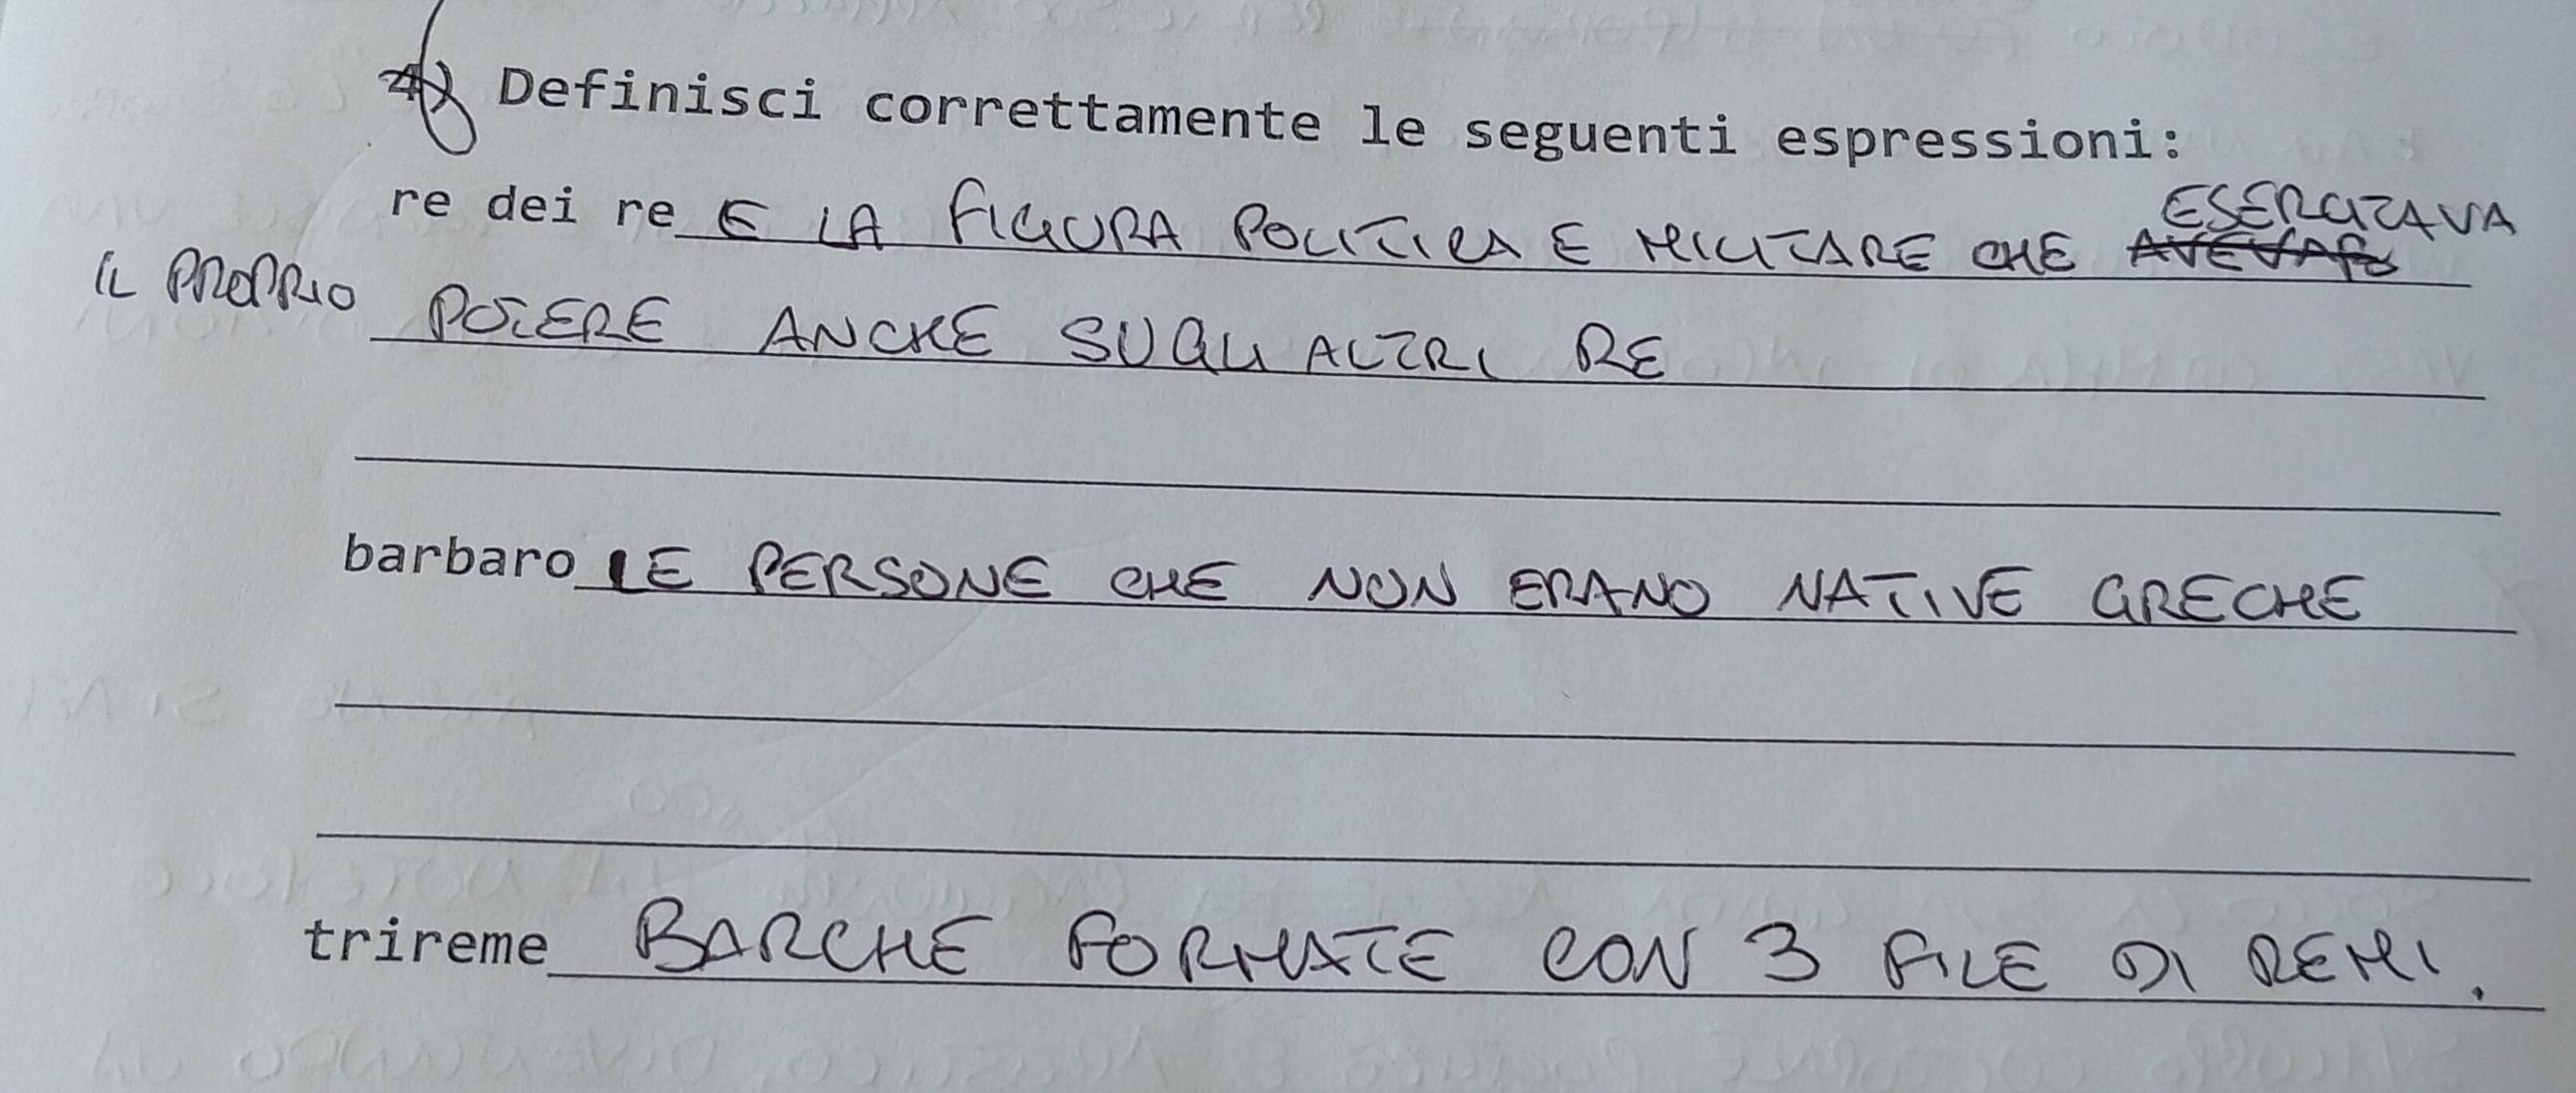 4) Definisci correttamente le seguenti espressioni:
re dei re E LA FIGURA POLITICA E MILITARE CHE AVEVANO ESERCITAVA
IL PROPRIO POTERE ANCHE SUGLI ALTRI RE
barbaro LE PERSONE CHE NON ERANO NATIVE GRECHE
trireme BARCHE FORMATE CON 3 FILE DI REMI.